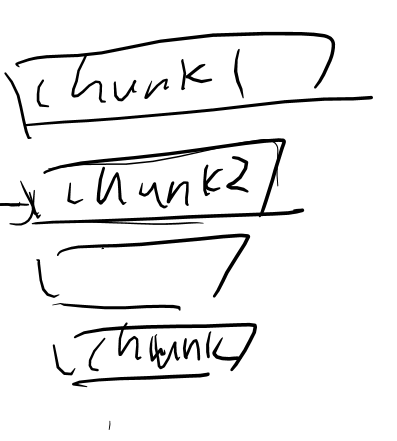 chunk1
chunk2
chunk